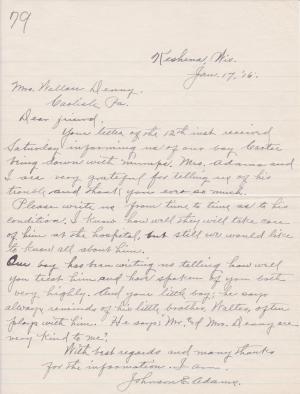 79
Keshena, Wis.
Jan. 17, '16.
Mrs. Wallace Denny,
Carlisle, Pa.
Dear friend:
Your letter of the 12th inst received
Saturday informing us of our boy Carter
being down with mumps. Mrs. Adams and
I are very grateful for telling us of his
and thank you ever so much.
Please write us from time to time as to his
condition. I know how well they will take care
of him at the hospital, but still we would like
to know all about him.
Our boy has been writing us telling how well
you treat him and has spoken of you both
very highly. And your little boy; he says
always reminds of his little brother, Walter, often
plays with him. He says: "Mr. & Mrs. Denny are
very kind to me."
With best regards and many thanks
for the information. I am.
Johnson E. Adams.